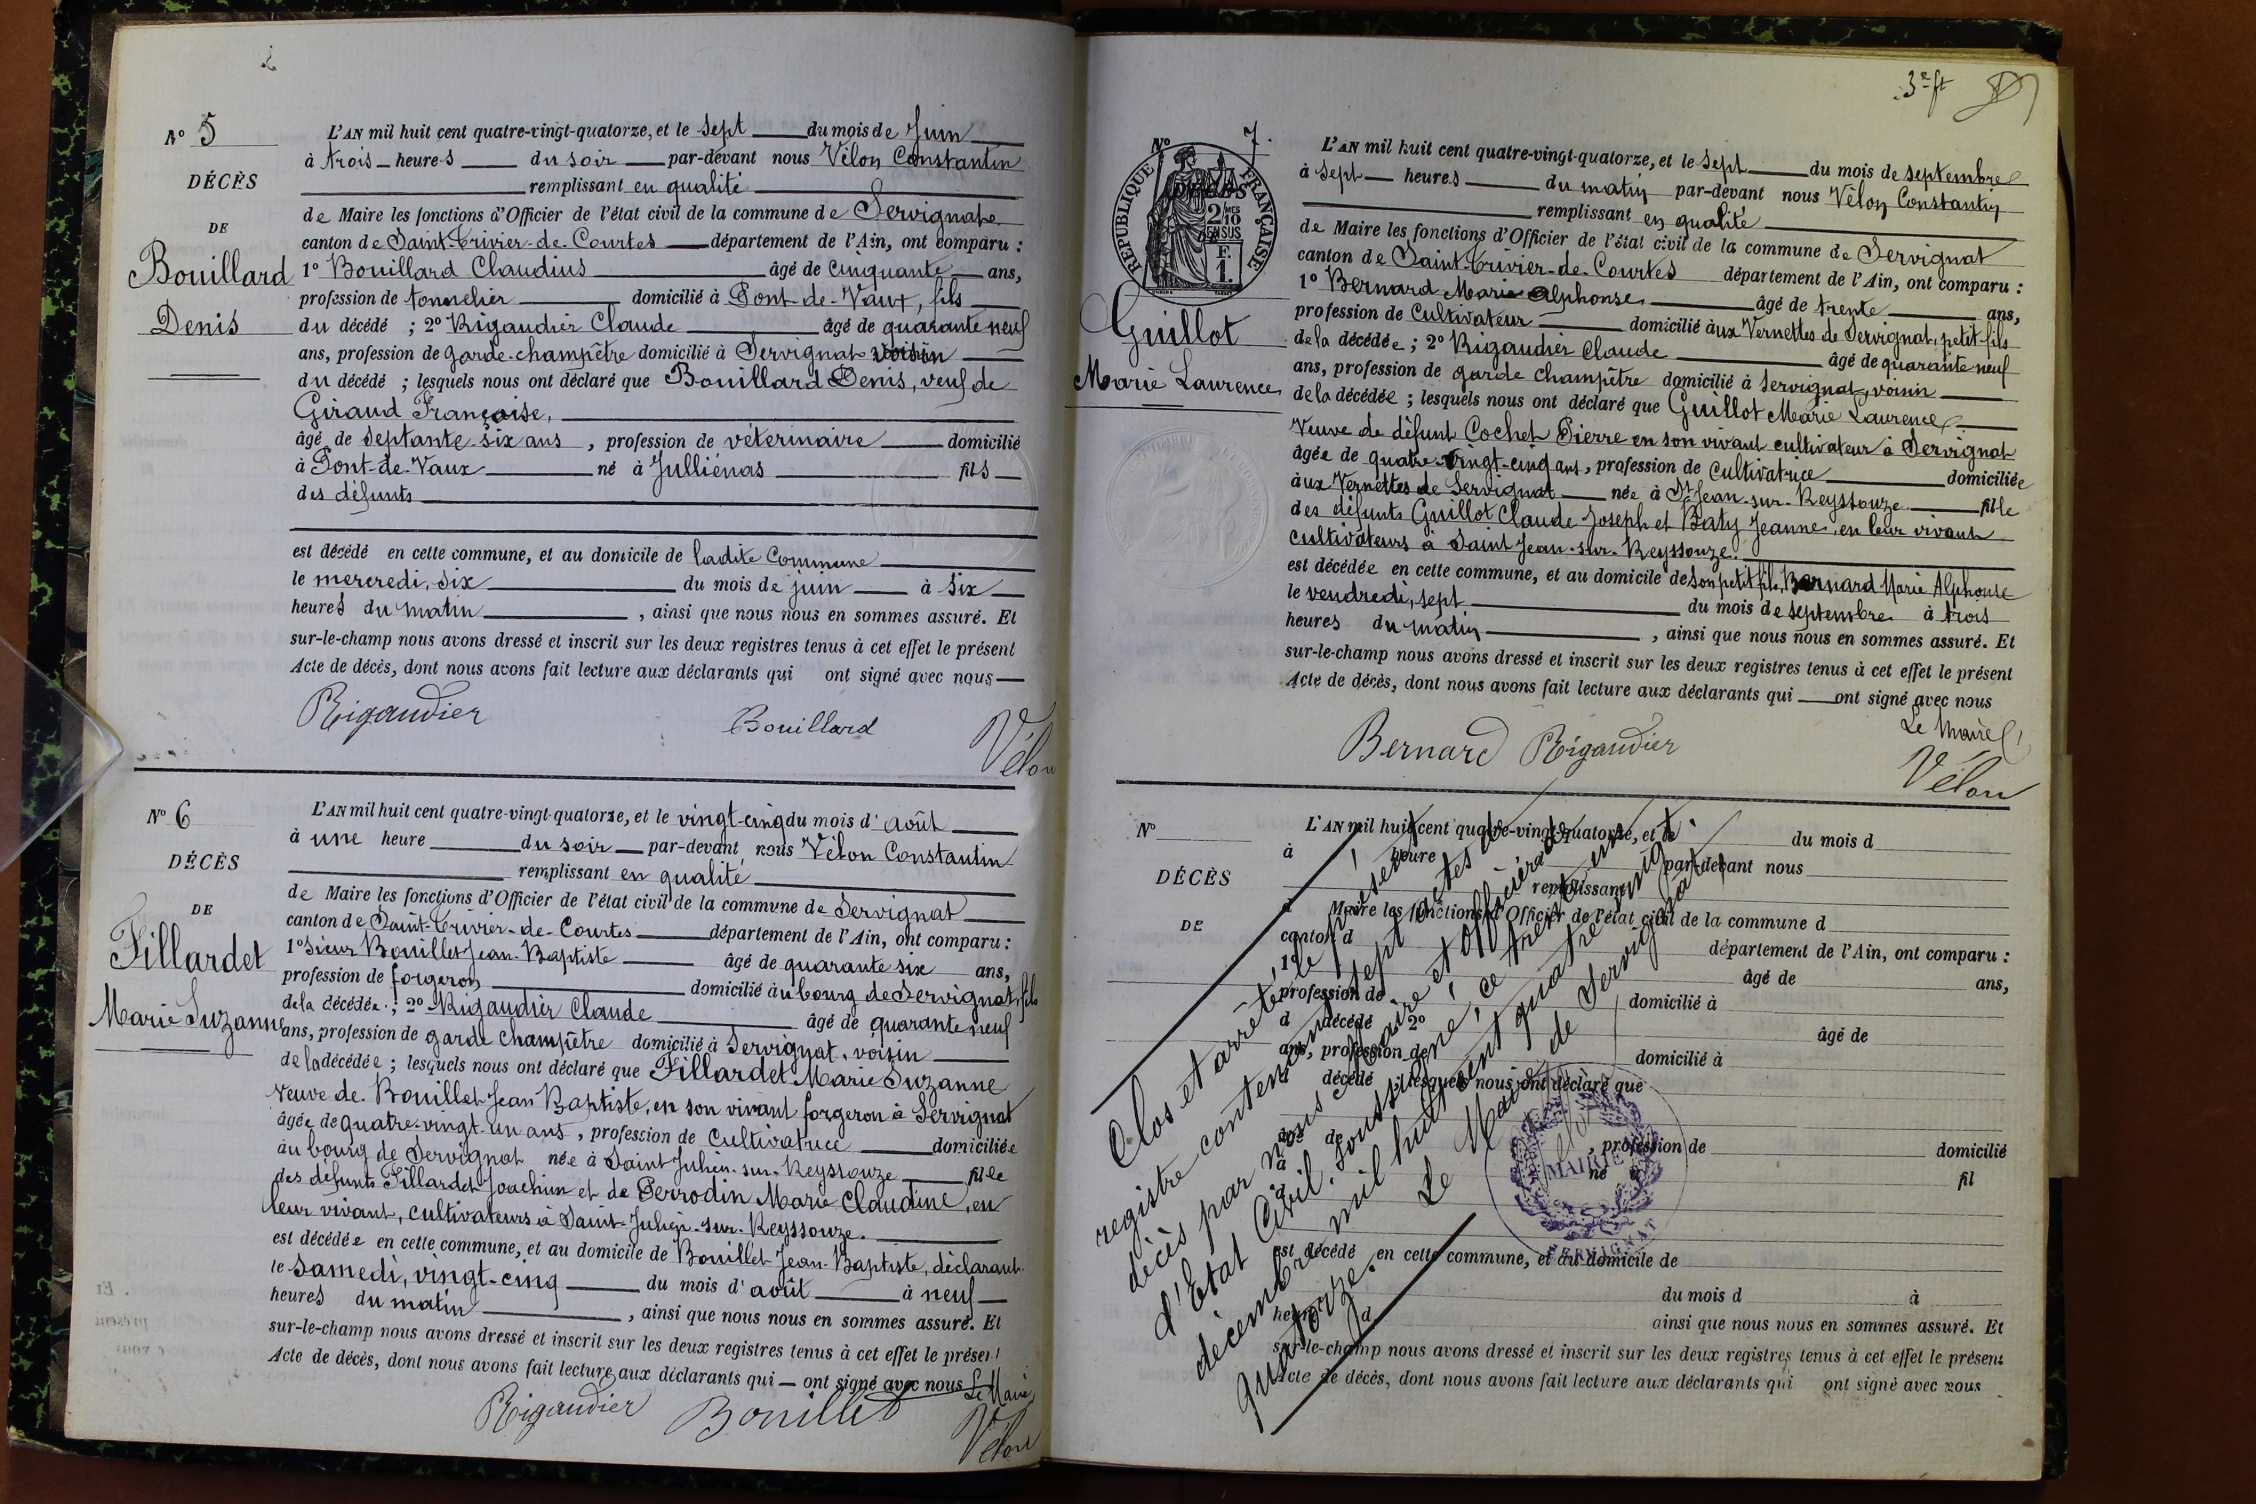 2
N° 5
DÉCÈS
DE
Bouillard
Denis
L'AN mil huit cent quatre-vingt-quatorze, et le sept du mois de Juin
à trois heures du soir par-devant nous Vélon Constantin
remplissant en qualité
de Maire les fonctions d'Officier de l'état civil de la commune de Servignat
canton de Saint-Trivier-de-Courtes département de l'Ain, ont comparu :
1° Bouillard Claudius âgé de cinquante ans,
profession de tonnelier domicilié à Pont-de-Vaux, fils
du décédé ; 2° Rigaudier Claude âgé de quarante neuf
ans, profession de garde-champêtre domicilié à Servignat voisin
du décédé ; lesquels nous ont déclaré que Bouillard Denis, veuf de
Giraud Françoise,
âgé de septante-six ans , profession de véterinaire domicilié
à Pont-de-Vaux né à Julliénas fils
des défunts
est décédé en cette commune, et au domicile de ladite Commune
le mercredi, six du mois de juin à six
heures du matin , ainsi que nous nous en sommes assuré. Et
sur-le-champ nous avons dressé et inscrit sur les deux registres tenus à cet effet le présent
Acte de décès, dont nous avons fait lecture aux déclarants qui ont signé avec nous
Rigaudier Bouillard Vélon
N° 6
DÉCÈS
DE
Fillardet
Marie Suzanne
L'AN mil huit cent quatre-vingt-quatorze, et le vingt-cinq du mois d'août
à une heure du soir par-devant nous Vélon Constantin
remplissant en qualité
de Maire les fonctions d'Officier de l'état civil de la commune de Servignat
canton de Saint-Trivier-de-Courtes département de l'Ain, ont comparu :
1° Sieur Bouillet Jean-Baptiste âgé de quarante six ans,
profession de forgeron domicilié au bourg de Servignat, fils
de la décédée ; 2° Rigaudier Claude âgé de quarante neuf
ans, profession de garde champêtre domicilié à Servignat, voisin
de la décédée ; lesquels nous ont déclaré que Fillardet Marie Suzanne
veuve de Bouillet Jean Baptiste, en son vivant forgeron à Servignat
âgée de quatre-vingt-un ans , profession de cultivatrice domiciliée
au bourg de Servignat née à Saint Julien-sur-Reyssouze fille
des défunts Fillardet Joachim et de Perrodin Marie Claudine, en
leur vivant, cultivateurs à Saint-Julien-sur-Reyssouze.
est décédée en cette commune, et au domicile de Bouillet Jean-Baptiste, déclarant
le samedi, vingt-cinq du mois d'août à neuf
heures du matin , ainsi que nous nous en sommes assuré. Et
sur-le-champ nous avons dressé et inscrit sur les deux registres tenus à cet effet le présent
Acte de décès, dont nous avons fait lecture aux déclarants qui ont signé avec nous Le Maire
Rigaudier Bouillet Vélon
3e ft
N° 7.
RÉPUBLIQUE FRANÇAISE
2/10 EN SUS
F. 1.
Guillot
Marie Laurence
L'AN mil huit cent quatre-vingt-quatorze, et le sept du mois de septembre
à sept heures du matin par-devant nous Vélon Constantin
remplissant en qualité
de Maire les fonctions d'Officier de l'état civil de la commune de Servignat
canton de Saint-Trivier-de-Courtes département de l'Ain, ont comparu :
1° Bernard Marie Alphonse âgé de trente ans,
profession de cultivateur domicilié aux Vernettes de Servignat, petit-fils
de la décédée ; 2° Rigaudier Claude âgé de quarante neuf
ans, profession de garde champêtre domicilié à Servignat, voisin
de la décédée ; lesquels nous ont déclaré que Guillot Marie Laurence
Veuve de défunt Cochet Pierre en son vivant cultivateur à Servignat
âgée de quatre-vingt-cinq ans , profession de cultivatrice domiciliée
aux Vernettes de Servignat née à St Jean-sur-Reyssouze fille
des défunts Guillot Claude Joseph et Baty Jeanne, en leur vivant
cultivateurs à Saint Jean-sur-Reyssouze.
est décédée en cette commune, et au domicile de son petit fils, Bernard Marie Alphonse
le vendredi, sept du mois de septembre à trois
heures du matin , ainsi que nous nous en sommes assuré. Et
sur-le-champ nous avons dressé et inscrit sur les deux registres tenus à cet effet le présent
Acte de décès, dont nous avons fait lecture aux déclarants qui ont signé avec nous
Le Maire
Bernard Rigaudier Vélon
N°
DÉCÈS
DE
L'AN mil huit cent quatre-vingt-quatorze, et le du mois d
à heure par-devant nous
remplissant
d Maire les fonctions d'Officier de l'état civil de la commune d
canton d département de l'Ain, ont comparu :
1° âgé de ans,
profession de domicilié à
d décédé 2° âgé de
ans, profession de domicilié à
d décédé ; lesquels nous ont déclaré que
âgé de , profession de domicilié
à né à fil
est décédé en cette commune, et au domicile de
le du mois d à
heure d ainsi que nous nous en sommes assuré. Et
sur-le-champ nous avons dressé et inscrit sur les deux registres tenus à cet effet le présent
Acte de décès, dont nous avons fait lecture aux déclarants qui ont signé avec nous
Clos et arrêté, le présent
registre contenant sept actes de
décès par nous Maire et Officier
d'Etat Civil, soussigné, ce trente un
décembre mil huit cent quatre vingt
quatorze.
Le Maire de Servignat
Vélon
MAIRIE
SERVIGNAT